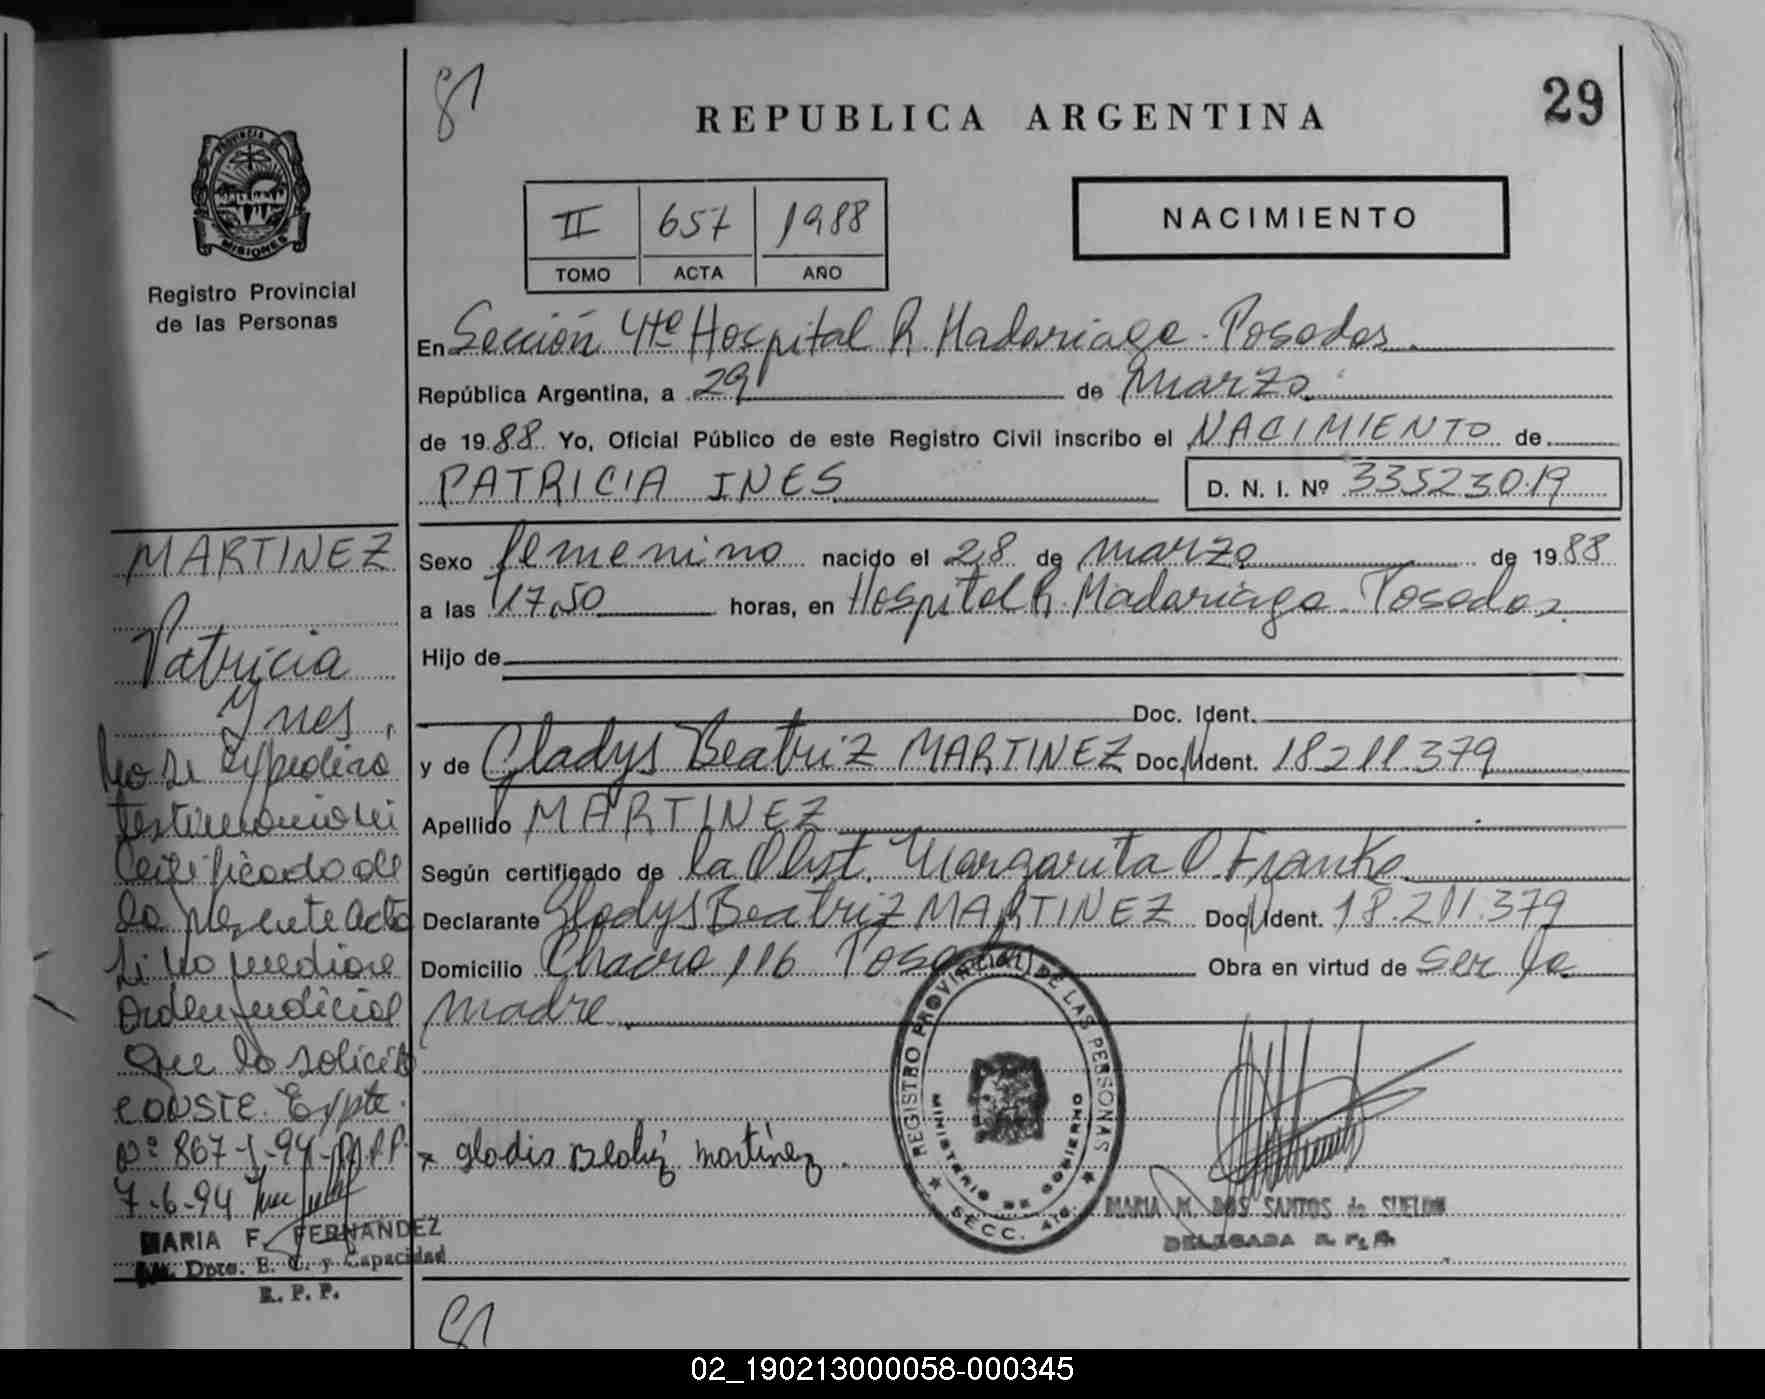 81
REPUBLICA ARGENTINA
29
PROVINCIA DE
MISIONES
Registro Provincial
de las Personas
II 657 1988
TOMO ACTA AÑO
NACIMIENTO
En Sección 4ta Hospital R. Madariaga - Posadas.
República Argentina, a 29 de Marzo
de 1988 Yo, Oficial Público de este Registro Civil inscribo el NACIMIENTO de
PATRICIA INES
D. N. I. Nº 33523019
Sexo femenino nacido el 28 de marzo de 1988
a las 17,50 horas, en Hospital R. Madariaga. Posadas.
Hijo de
Doc. Ident.
y de Gladys Beatriz MARTINEZ Doc. Ident. 18211.379
Apellido MARTINEZ
Según certificado de la Obst. Margarita O. Franke
Declarante Gladys Beatriz MARTINEZ Doc. Ident. 18.211.379
Domicilio Chacra 116 Posadas Obra en virtud de ser la
madre
x gladis Beatriz martinez.
REGISTRO PROVINCIAL DE LAS PERSONAS
MINISTERIO DE GOBIERNO
SECC. 4ta.
MARIA M. DOS SANTOS de
DELEGADA R. P. P.
MARTINEZ
Patricia
Ynes,
No se expedirá
testimonio ni
Certificado de
la presente acta
si no mediase
Orden judicial
que lo solicite
CONSTE. Expte.
Nº 867-J-94-R.P.P.
7-6-94
MARIA F. FERNANDEZ
Dpto. E. C. y Capacidad
R. P. P.
81
02_190213000058-000345